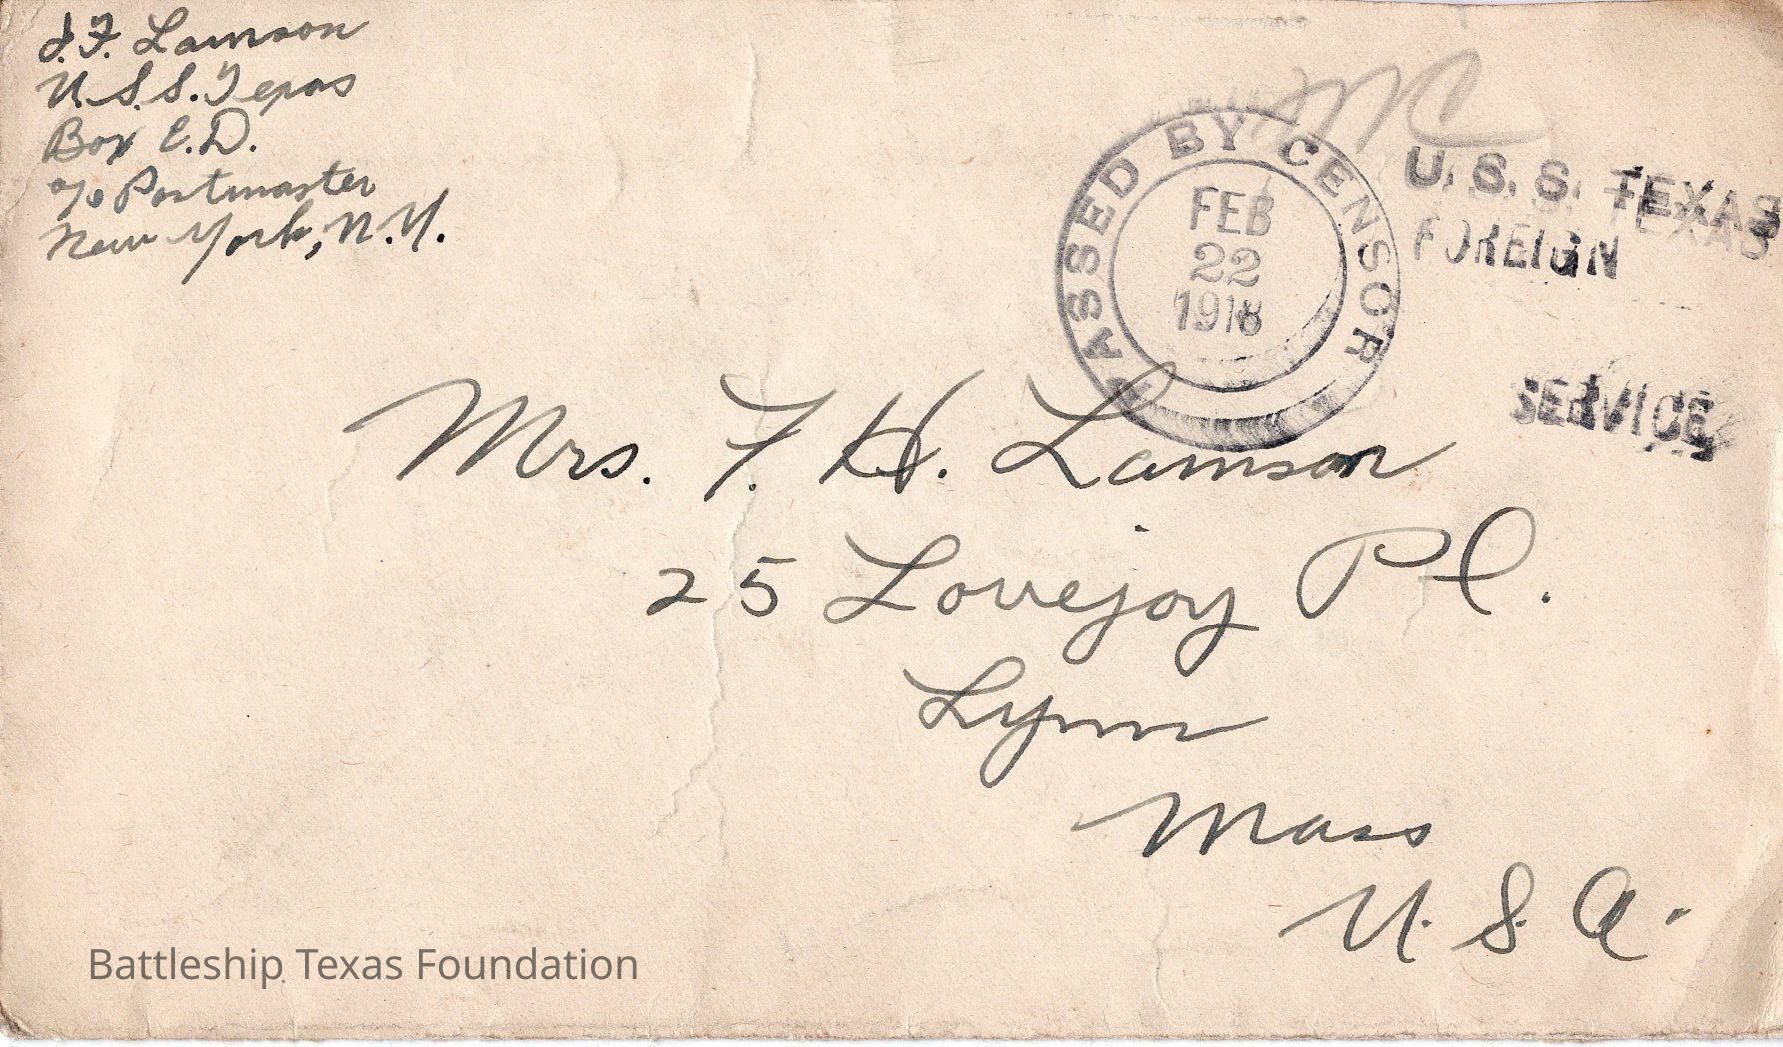 J.F. Lamson
U.S.S. Texas
Box E.D.
c/o Postmaster
New York, N.Y.
PASSED BY CENSOR
FEB
22
1918
U.S.S. TEXAS
FOREIGN
SERVICE
Mrs. F. H. Lamson
25 Lovejoy Pl.
Lynn
Mass
U.S.A.
Battleship Texas Foundation